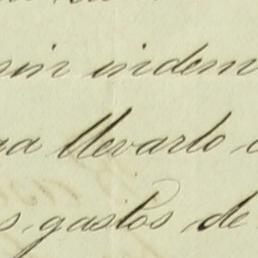 sin indem
llevarlo
gastos de